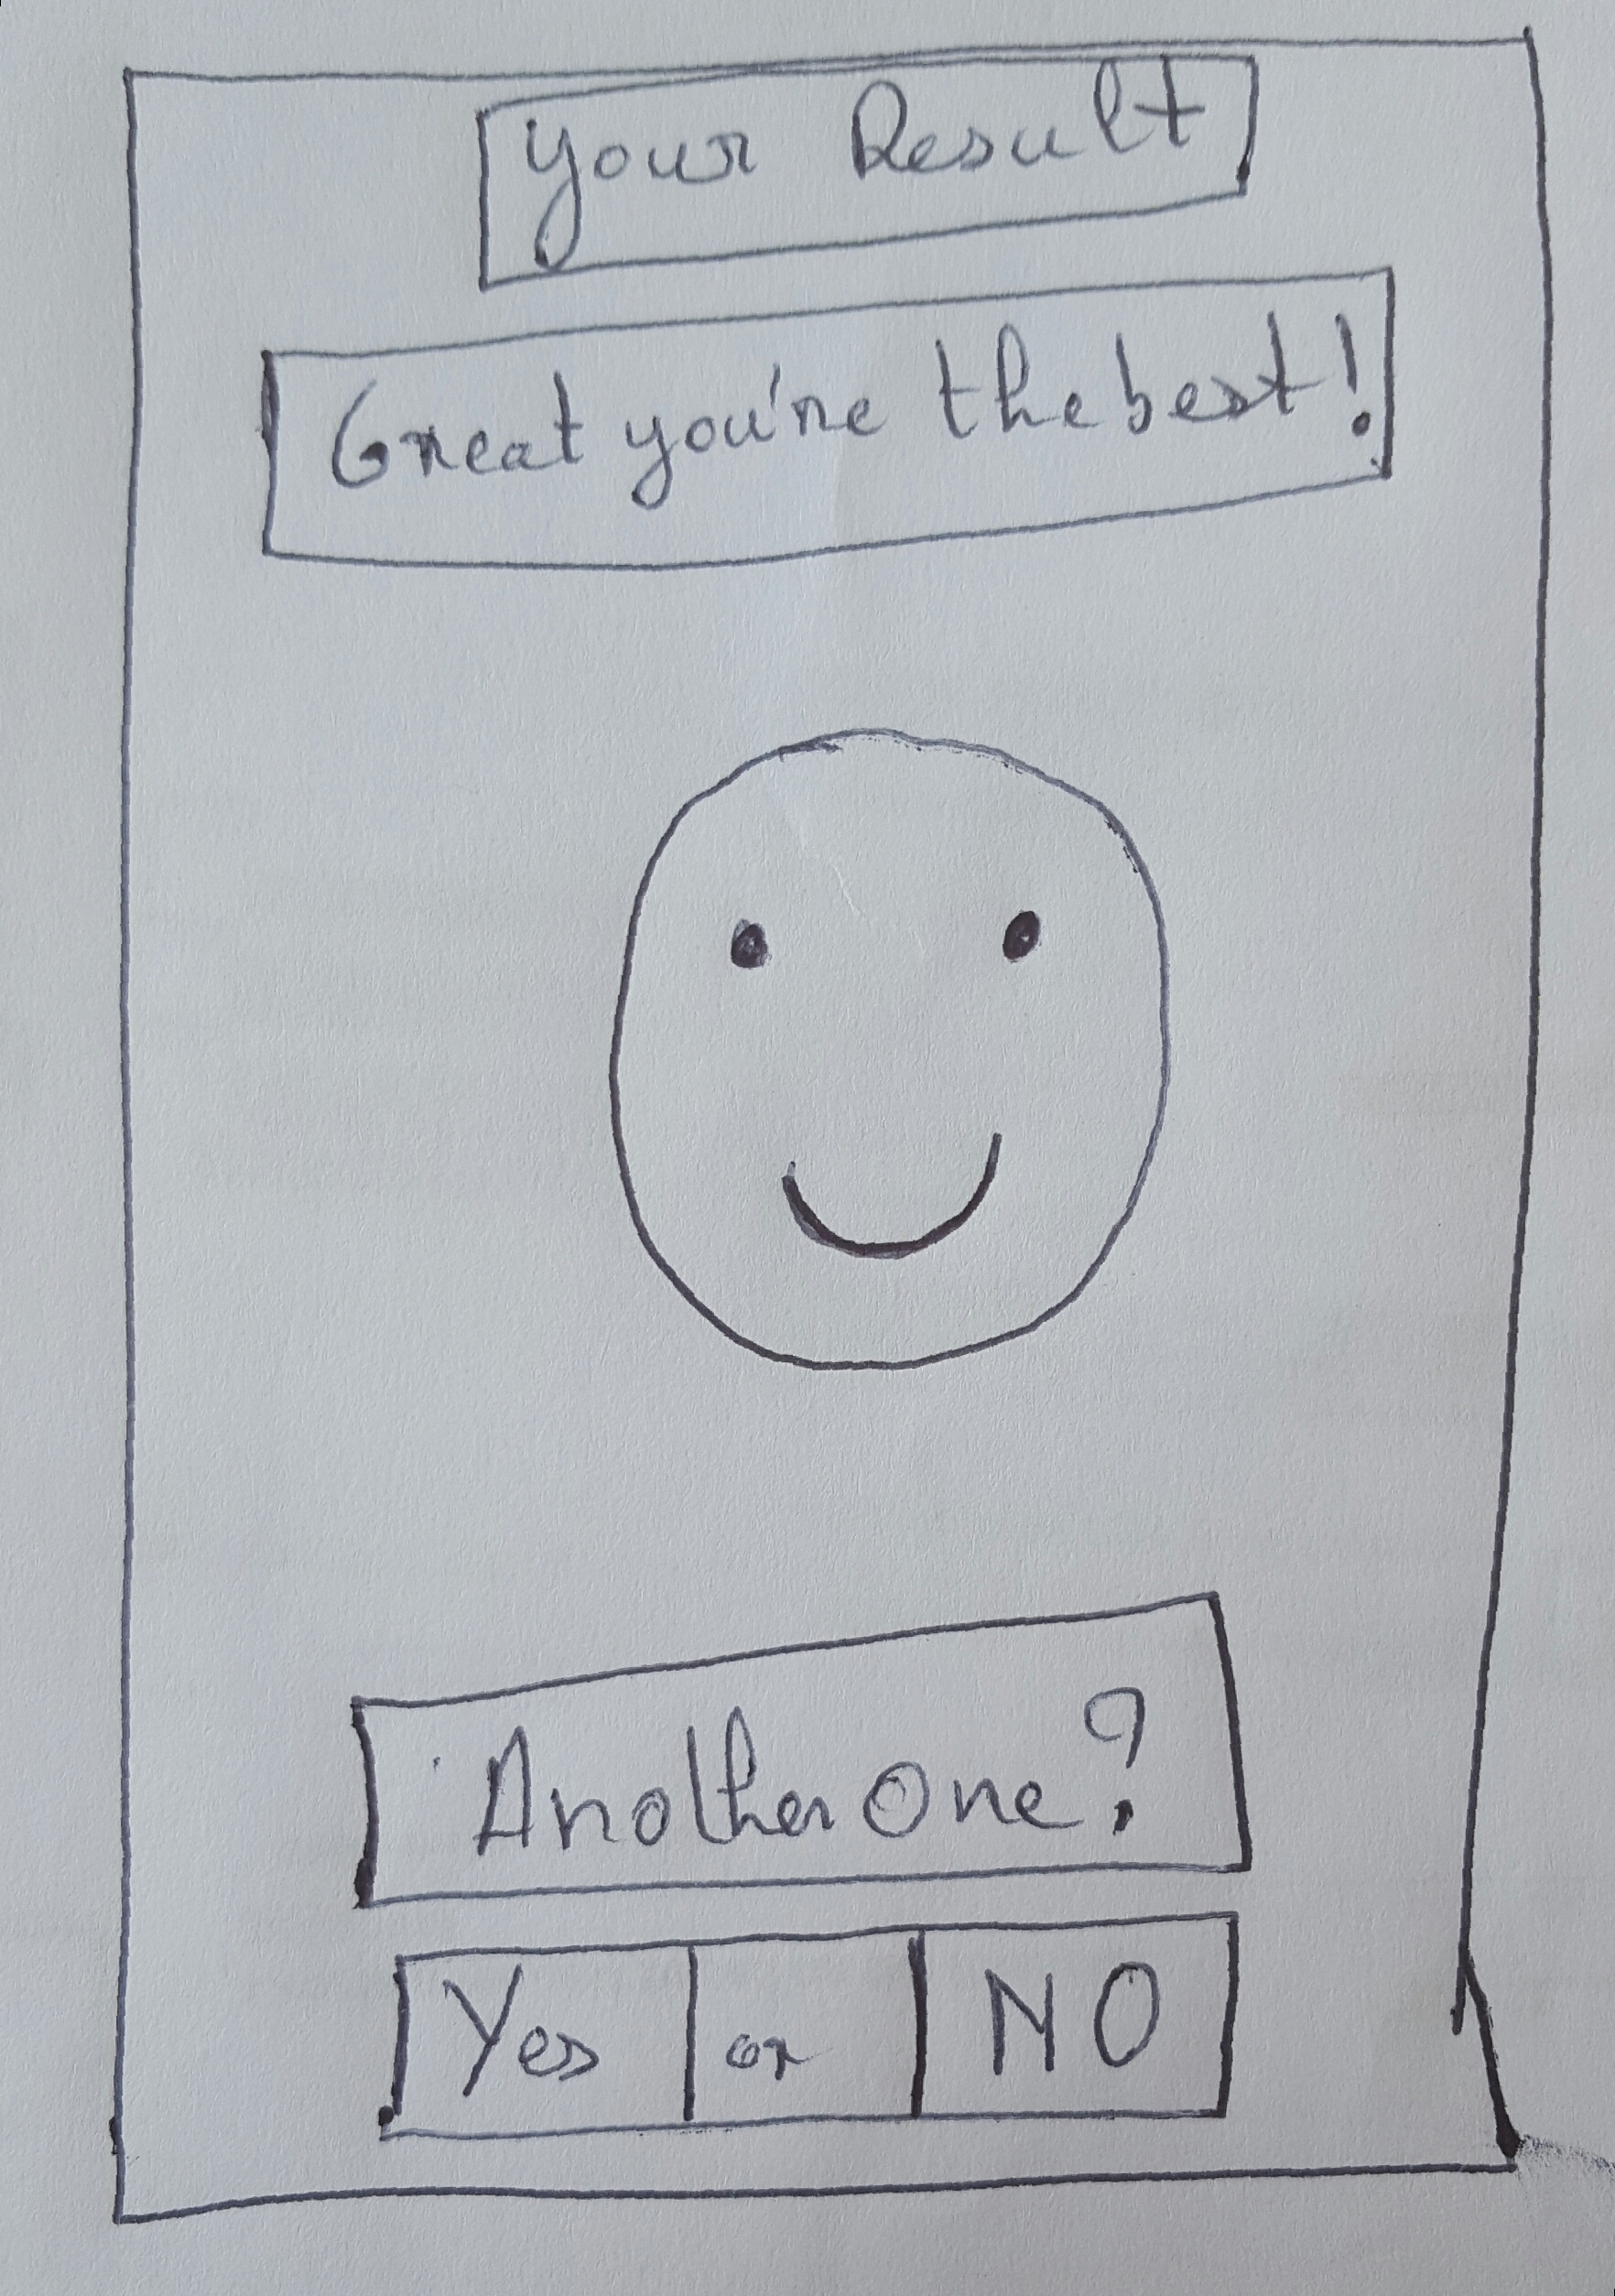 Your Result
Great you're the best!
Another One?
Yes or NO